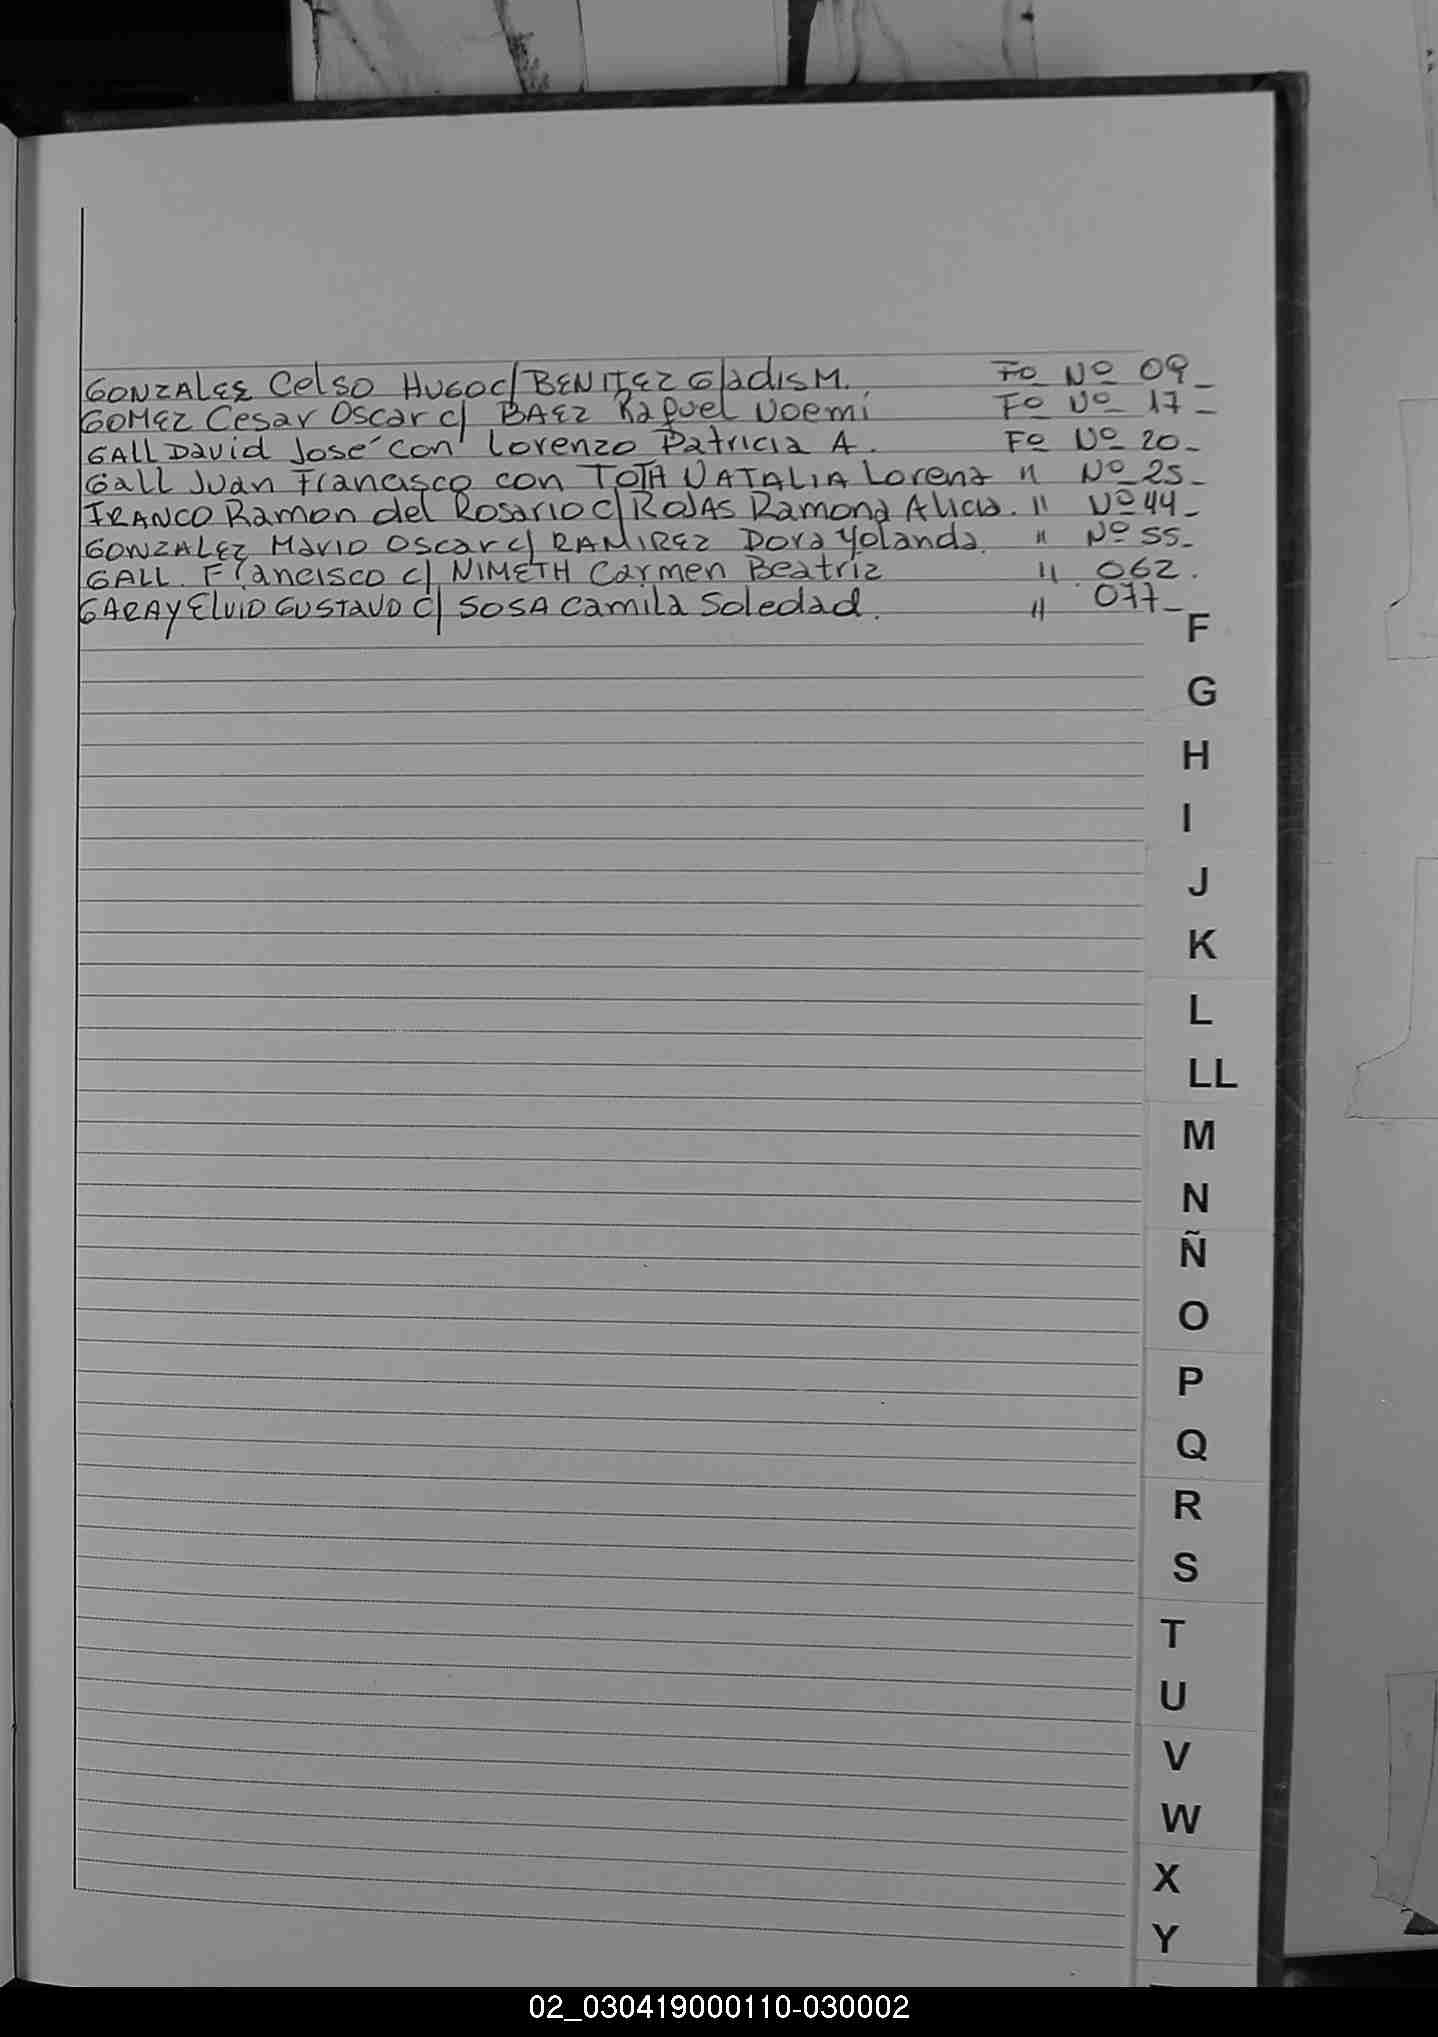 GONZALEZ Celso HUGO c/ BENITEZ Gladis M. Fo Nº 09_
GOMEZ Cesar Oscar c/ BAEZ Raquel Noemi Fo Nº 17_
GALL David José con Lorenzo Patricia A. Fo Nº 20_
Gall Juan Francisco con TOTH NATALIA Lorena " Nº 25_
FRANCO Ramon del Rosario c/ ROJAS Ramona Alicia. " Nº 44_
GONZALEZ MARIO OSCAR c/ RAMIREZ Dora Yolanda. " Nº 55_
GALL. Francisco c/ NIMETH Carmen Beatriz " 062.
GARAY ElVIO GUSTAVO c/ SOSA Camila Soledad. " 077_
F
G
H
I
J
K
L
LL
M
N
Ñ
O
P
Q
R
S
T
U
V
W
X
Y
02_030419000110-030002